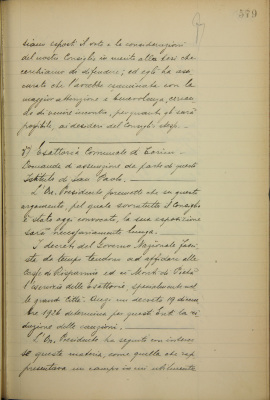 379
siamo esposti il voto e le considerazioni
del nostro Consiglio in merito alla tesi che
cerchiamo di difendere; ed egli ha assi
curato che l'avrebbe esaminata con la
maggior attenzione e benevolenza, cercan
do di venire incontro, per quanto gli sarà
possibile, ai desideri del Consiglio stesso.
5° Esattoria Comunale di Torino
Domanda di assunzione da parte di questo
Istituto di San Paolo.
L'On. Presidente premette che su questo
argomento, pel quale soprattutto il Consiglio
è stato oggi convocato, la sua esposizione
sarà necessariamente lunga.
I decreti del Governo Nazionale Fasci
sta da tempo tendono ad affidare alle
Casse di Risparmio ed ai Monti di Pietà
l'esercizio delle esattorie, specialmente nel
le grandi città. Anzi un decreto 19
bre 1926 determina per questi Enti la ri
duzione delle cauzioni.
L'On. Presidente ha seguito con interes
se questa materia, come quella che rap
presentava un campo in cui utilmente